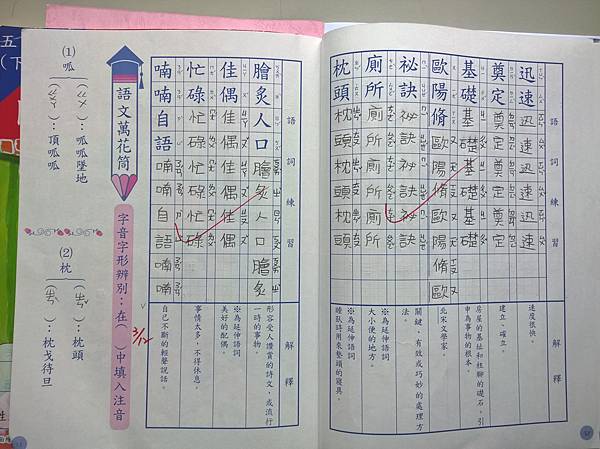 語詞練習 解釋
迅速 迅速迅速迅速 速度很快。
奠定 奠定奠定奠定 建立、確立。
基礎 基礎基礎基礎 房屋的基址和柱腳的礎石，引申為事物的根本。
歐陽脩 歐陽脩歐陽脩歐 北宋文學家
祕訣 祕訣祕訣祕訣 關鍵、有效或巧妙的處理方法。
廁所 廁所廁所廁所 ※為延伸語詞 大小便的地方。
枕頭 枕頭枕頭枕頭 ※為延伸語詞 睡臥時用來墊頭的寢具。
語詞練習 解釋
膾炙人口 膾炙人口膾炙 形容受人讚賞的詩文，或流行一時的事物。
佳偶 佳偶佳偶佳偶 ※為延伸語詞 美好的配偶。
忙碌 忙碌忙碌忙碌 事情太多，不得休息。
喃喃自語 喃喃自語喃喃 自己不斷的輕聲說話。
3/12
語文萬花筒
字音字形辨別：在（ ）中填入注音
(1) 呱
（ㄍㄨ）：呱呱墜地
（ㄍㄨㄚ）：頂呱呱
(2) 枕
（ㄓㄣˇ）：枕頭
（ㄓㄣˋ）：枕戈待旦
五
下